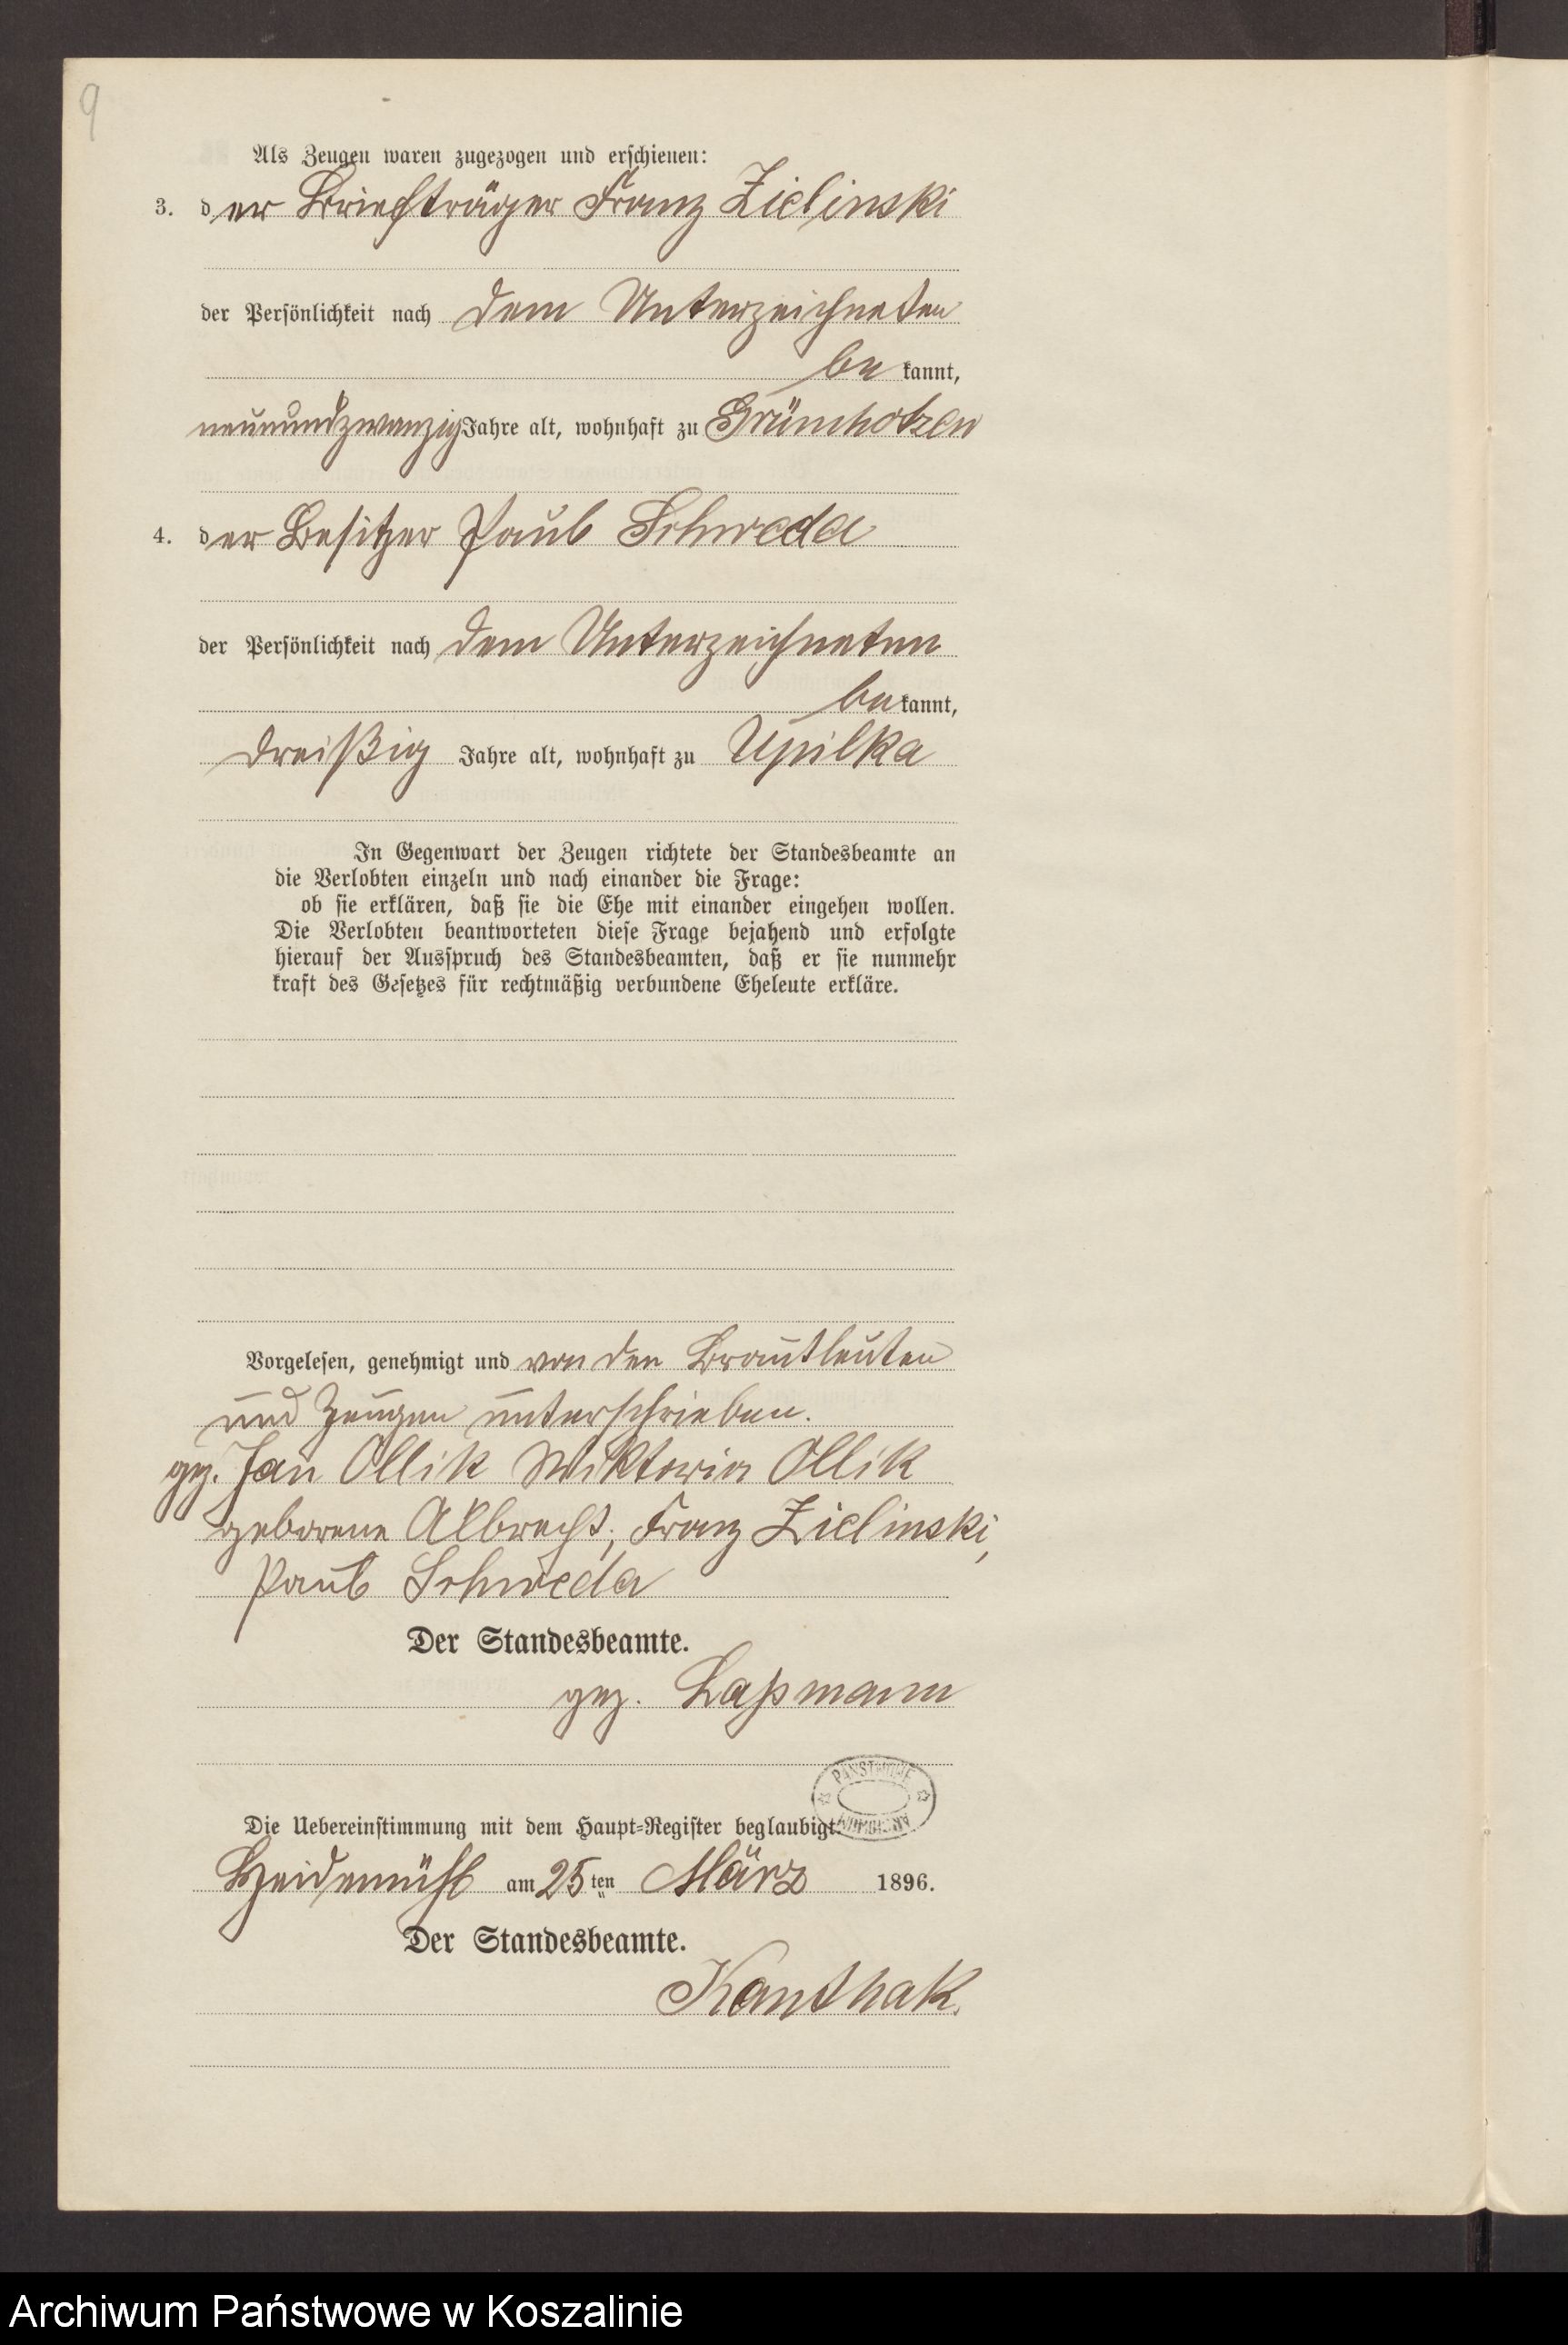 9
Als Zeugen waren zugezogen und erschienen:
3. der Briefträger Franz Zielinski
der Persönlichkeit nach dem Unterzeichneten
be kannt,
neunundzwanzig Jahre alt, wohnhaft zu Grünchotzen
4. der Besitzer Paul Schweda
der Persönlichkeit nach dem Unterzeichneten
be kannt,
dreißig Jahre alt, wohnhaft zu Upilka
In Gegenwart der Zeugen richtete der Standesbeamte an
die Verlobten einzeln und nach einander die Frage:
ob sie erklären, daß sie die Ehe mit einander eingehen wollen.
Die Verlobten beantworteten diese Frage bejahend und erfolgte
hierauf der Ausspruch des Standesbeamten, daß er sie nunmehr
kraft des Gesetzes für rechtmäßig verbundene Eheleute erkläre.
Vorgelesen, genehmigt und von den Brautleuten
und Zeugen unterschrieben.
gez. Jan Ollik Wiktoria Ollik
geborene Albrecht, Franz Zielinski,
Paul Schweda
Der Standesbeamte.
gez. Laßmann
PAŃSTWOWE
ARCHIWUM
Die Uebereinstimmung mit dem Haupt=Register beglaubigt
Heidemühl am 25ten März 1896.
Der Standesbeamte.
Kanthak.
Archiwum Państwowe w Koszalinie